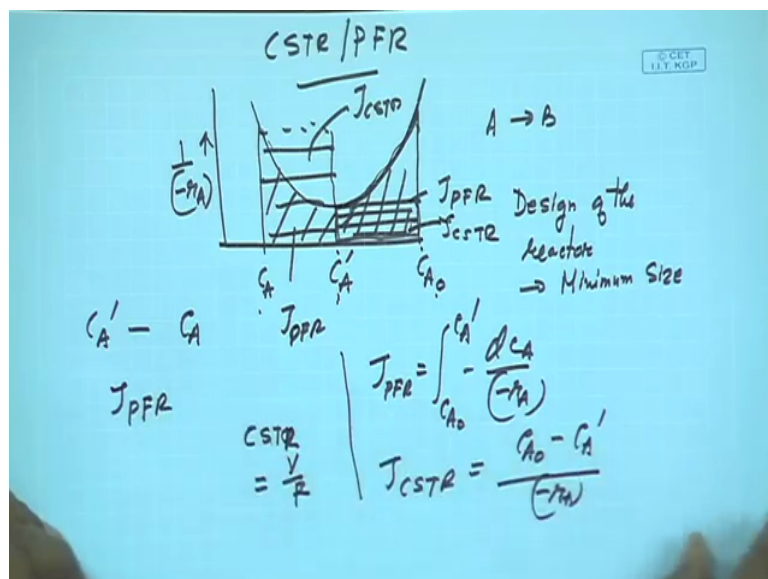 CSTR/PFR
© CET
I.I.T. KGP
JCSTR
A → B
1/(-rA) ↑
JPFR
JCSTR
Design of the
reactor
→ Minimum Size
CA
CA'
CA0
JPFR
CA' - CA
JPFR
JPFR = ∫CA0^CA' - dCA/(-rA)
CSTR
= V/F
JCSTR = (CA0 - CA')/(-rA)